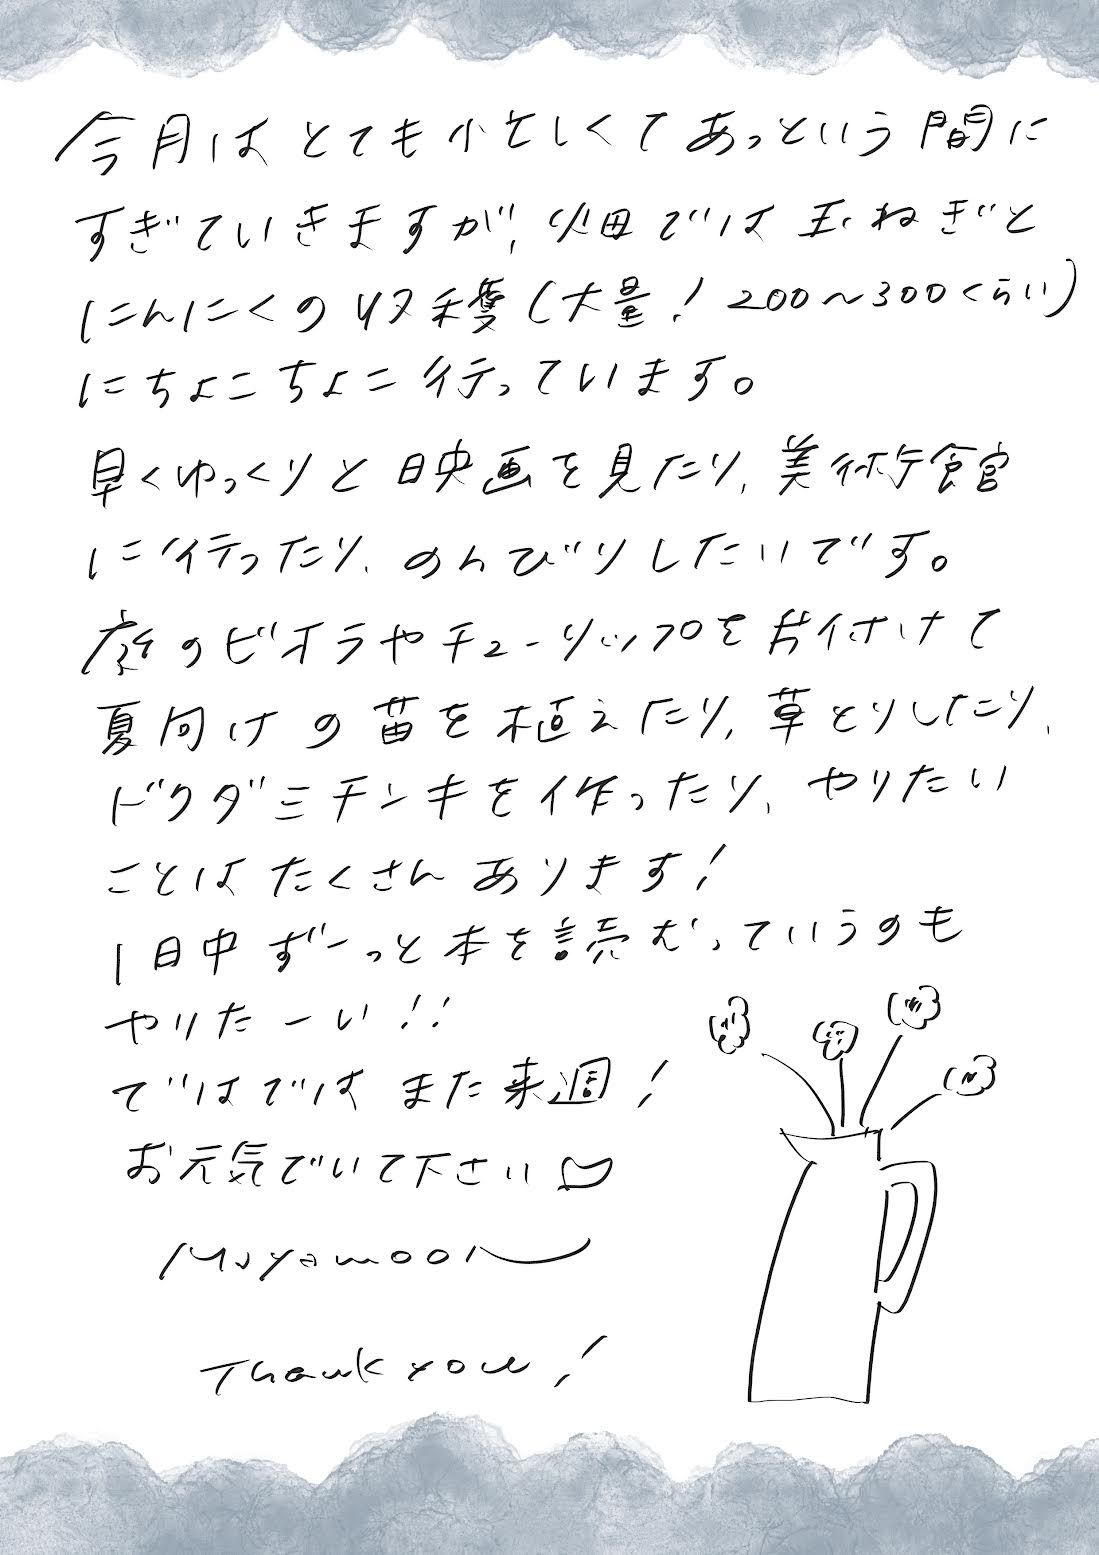 今月はとても忙しくてあっという間に
すぎていきますが、畑では玉ねぎと
にんにくの収穫(大量！200〜300くらい)
にちょこちょこ行っています。
早くゆっくりと映画を見たり、美術館
に行ったり、のんびりしたいです。
庭のビオラやチューリップを片付けて
夏向けの苗を植えたり、草とりしたり、
ドクダミチンキを作ったり、やりたい
ことはたくさんあります！
1日中ずーっと本を読むっていうのも
やりたーい！！
ではではまた来週！
お元気でいて下さい♡
Moyamoon
Thank you!